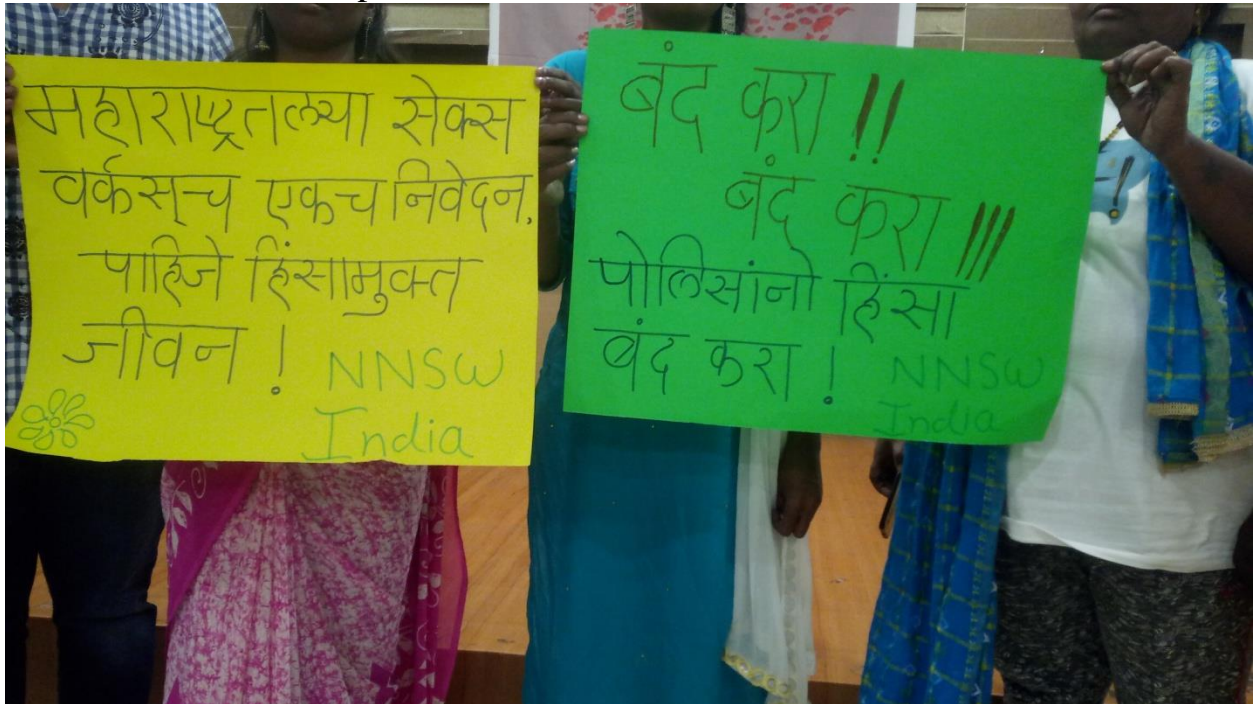 महाराष्ट्रतल्या सेक्स
वर्कसच एकच निवेदन.
पाहिजे हिंसामुक्त
जीवन !
NNSW
India
बंद करा !!
बंद करा !!!
पोलिसांनो हिंसा
बंद करा !
NNSW
India